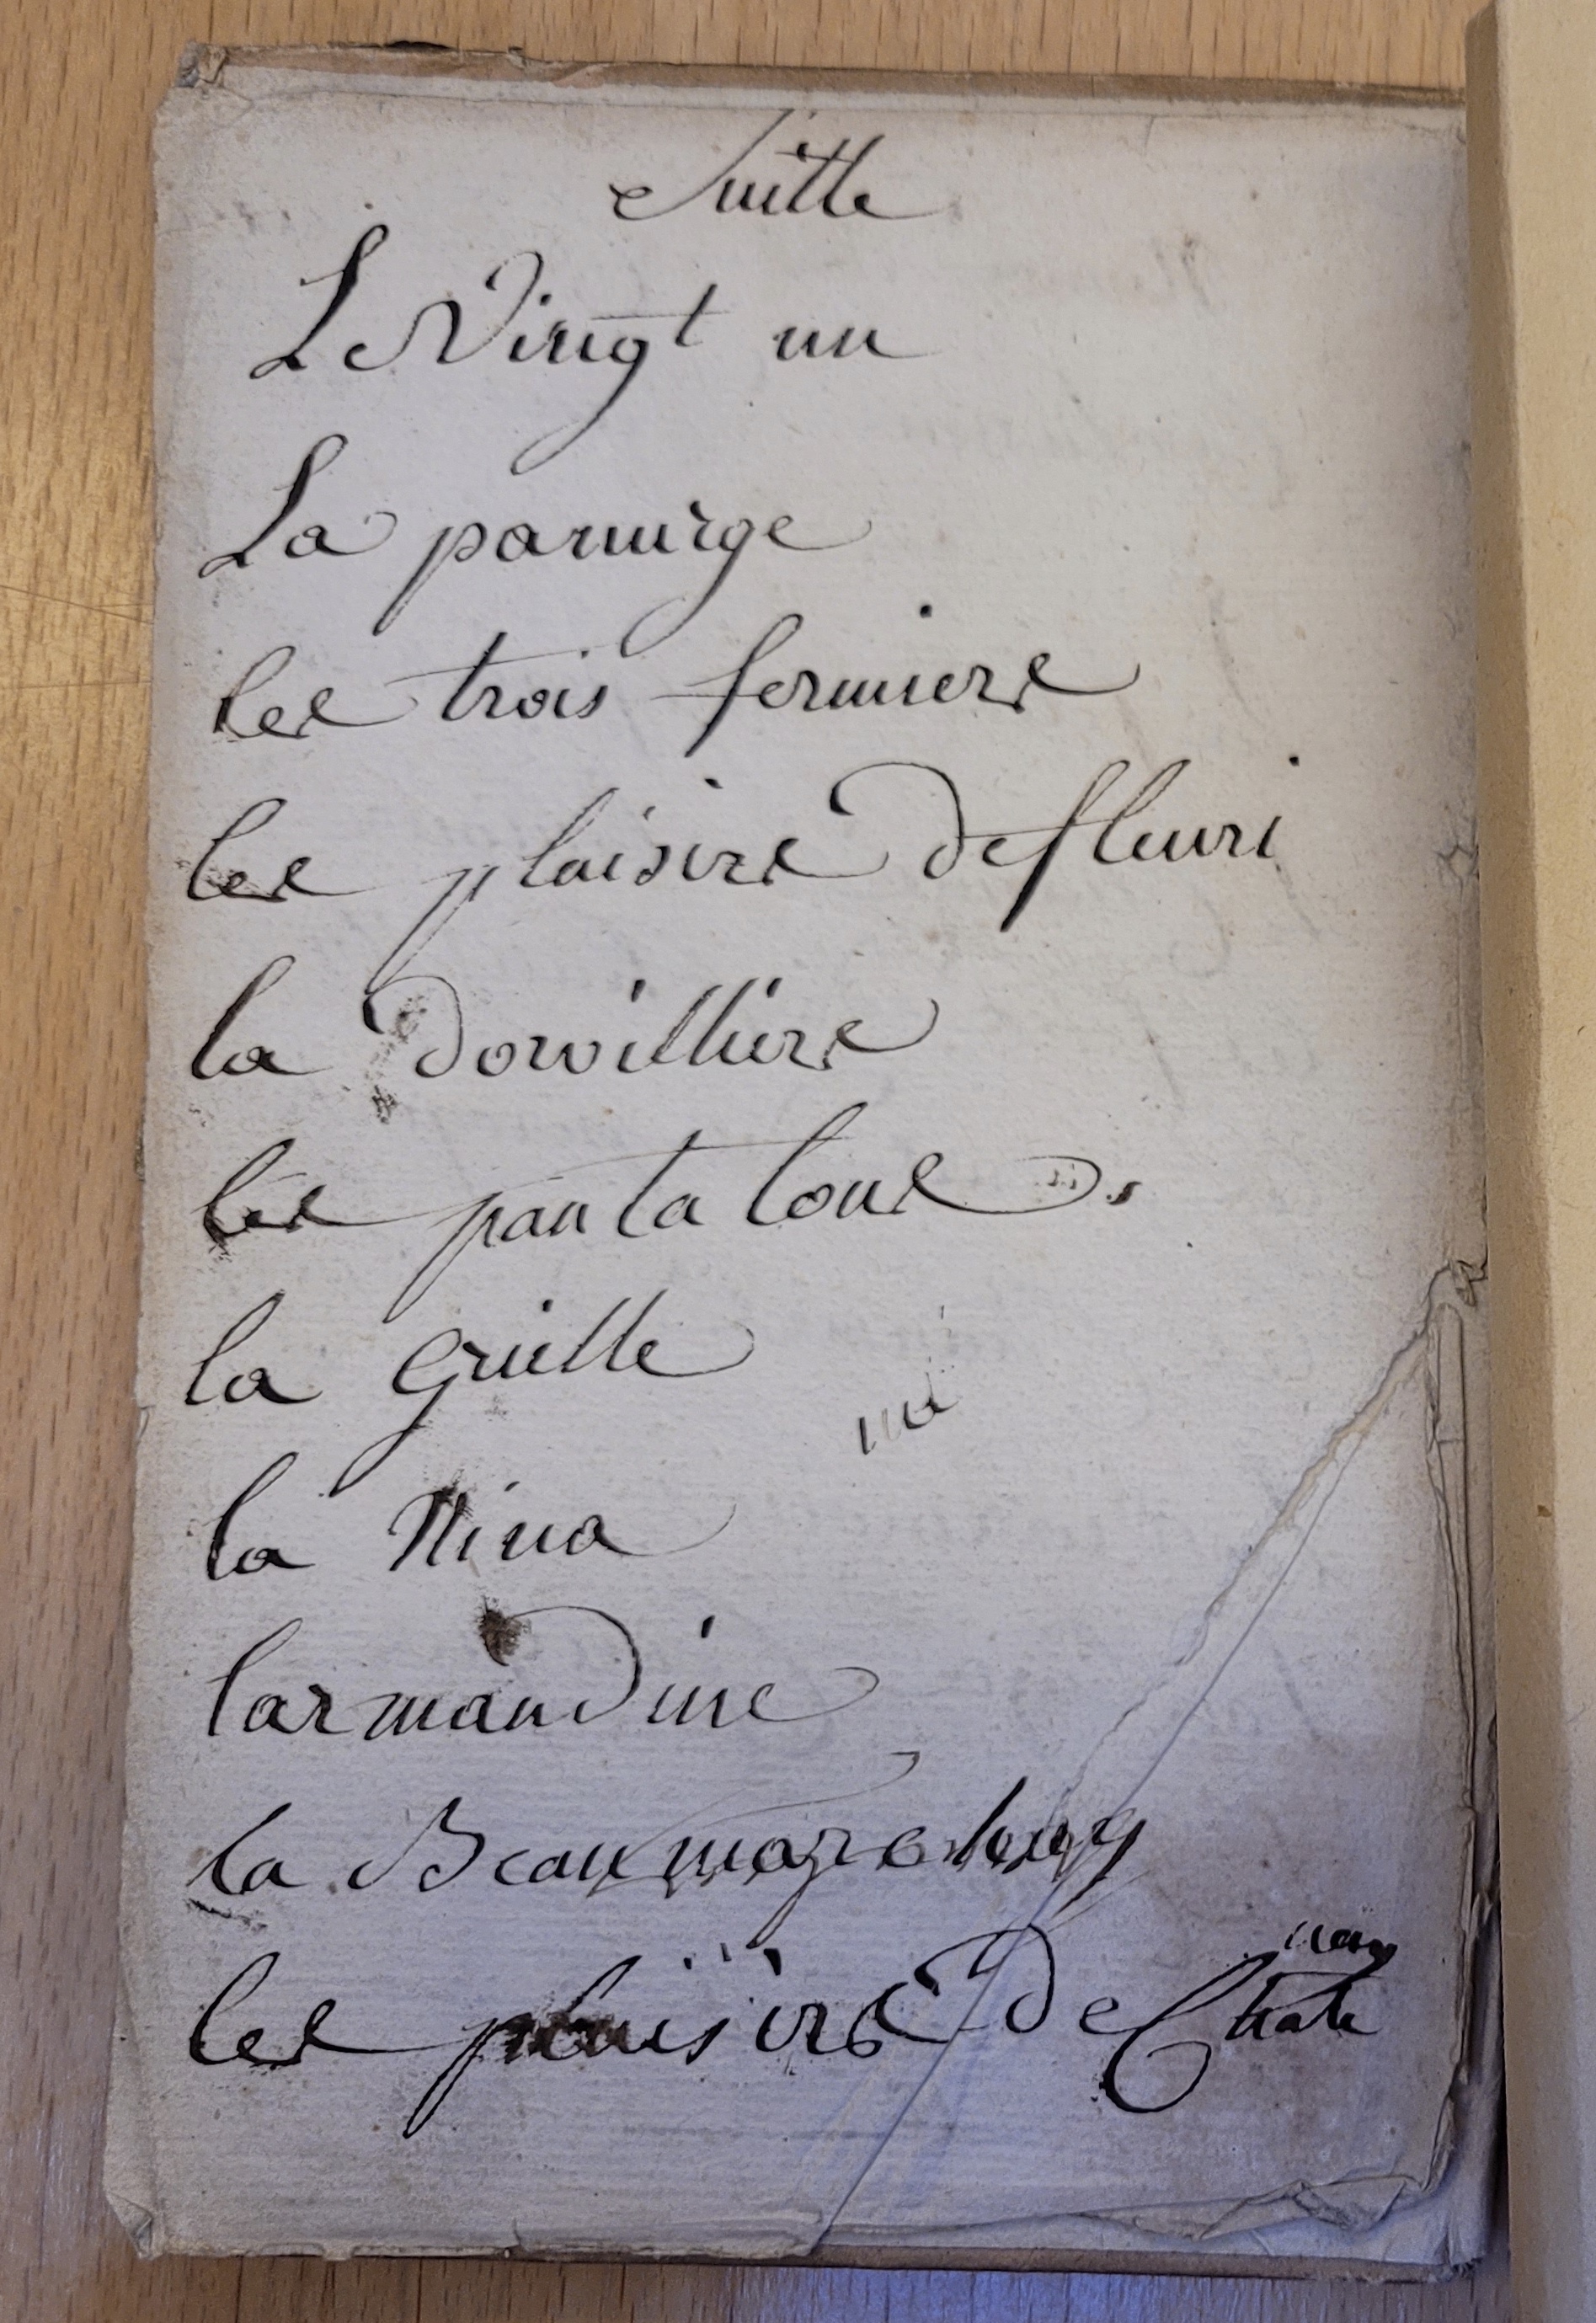 Suitte
Le Vingt un
La panurge
les trois fermiers
les plaisirs de fleuri
la dorvilliers
les pantalons
la Grille
la Nina
larmandine
la Beaumarchay
les plaisirs de Chate
nay